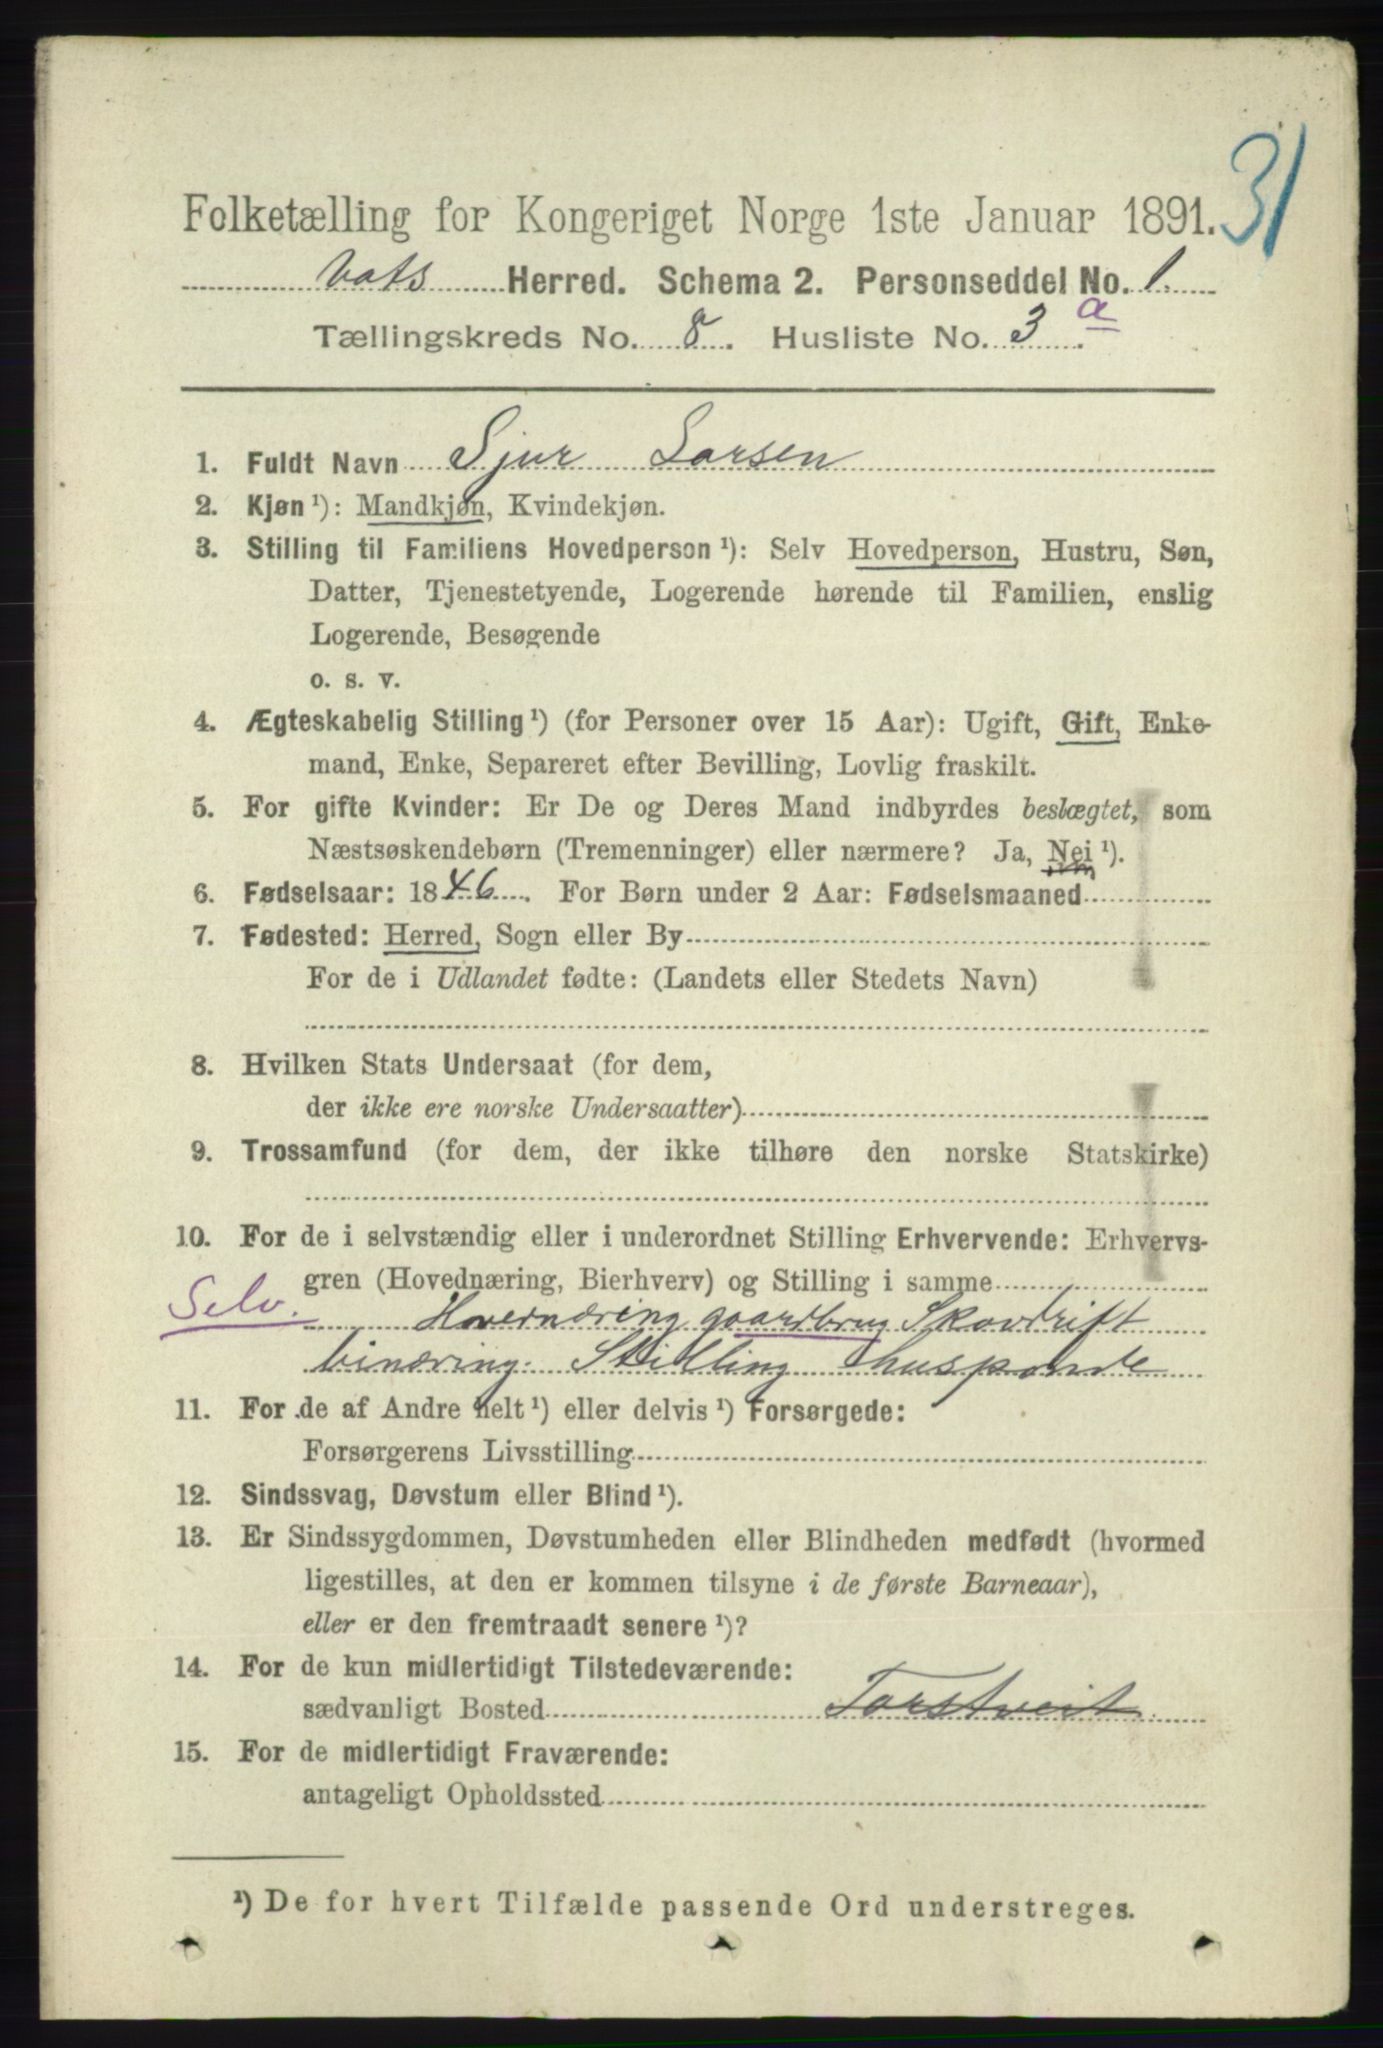 31
Folketælling for Kongeriget Norge 1ste Januar 1891.
Vats Herred. Schema 2. Personseddel No. 1.
Tællingskreds No. 8. Husliste No. 3 a.
1. Fuldt Navn Sjur Larsen
2. Kjøn ¹): Mandkjøn, Kvindekjøn.
3. Stilling til Familiens Hovedperson ¹): Selv Hovedperson, Hustru, Søn,
Datter, Tjenestetyende, Logerende hørende til Familien, enslig
Logerende, Besøgende
o. s. v.
4. Ægteskabelig Stilling ¹) (for Personer over 15 Aar): Ugift, Gift, Enke-
mand, Enke, Separeret efter Bevilling, Lovlig fraskilt.
5. For gifte Kvinder: Er De og Deres Mand indbyrdes beslægtet, som
Næstsøskendebørn (Tremenninger) eller nærmere? Ja, Nei ¹).
6. Fødselsaar: 1846. For Børn under 2 Aar: Fødselsmaaned
7. Fødested: Herred, Sogn eller By
For de i Udlandet fødte: (Landets eller Stedets Navn)
8. Hvilken Stats Undersaat (for dem,
der ikke ere norske Undersaatter)
9. Trossamfund (for dem, der ikke tilhøre den norske Statskirke)
10. For de i selvstændig eller i underordnet Stilling Erhvervende: Erhvervs-
gren (Hovednæring, Bierhverv) og Stilling i samme
Selv. Hovernæring gaardbrug Skovdrift
binæring. Stilling husponde
11. For de af Andre helt ¹) eller delvis ¹) Forsørgede:
Forsørgerens Livsstilling
12. Sindssvag, Døvstum eller Blind ¹).
13. Er Sindssygdommen, Døvstumheden eller Blindheden medfødt (hvormed
ligestilles, at den er kommen tilsyne i de første Barneaar),
eller er den fremtraadt senere ¹)?
14. For de kun midlertidigt Tilstedeværende:
sædvanligt Bosted Torstveit.
15. For de midlertidigt Fraværende:
antageligt Opholdssted
¹) De for hvert Tilfælde passende Ord understreges.